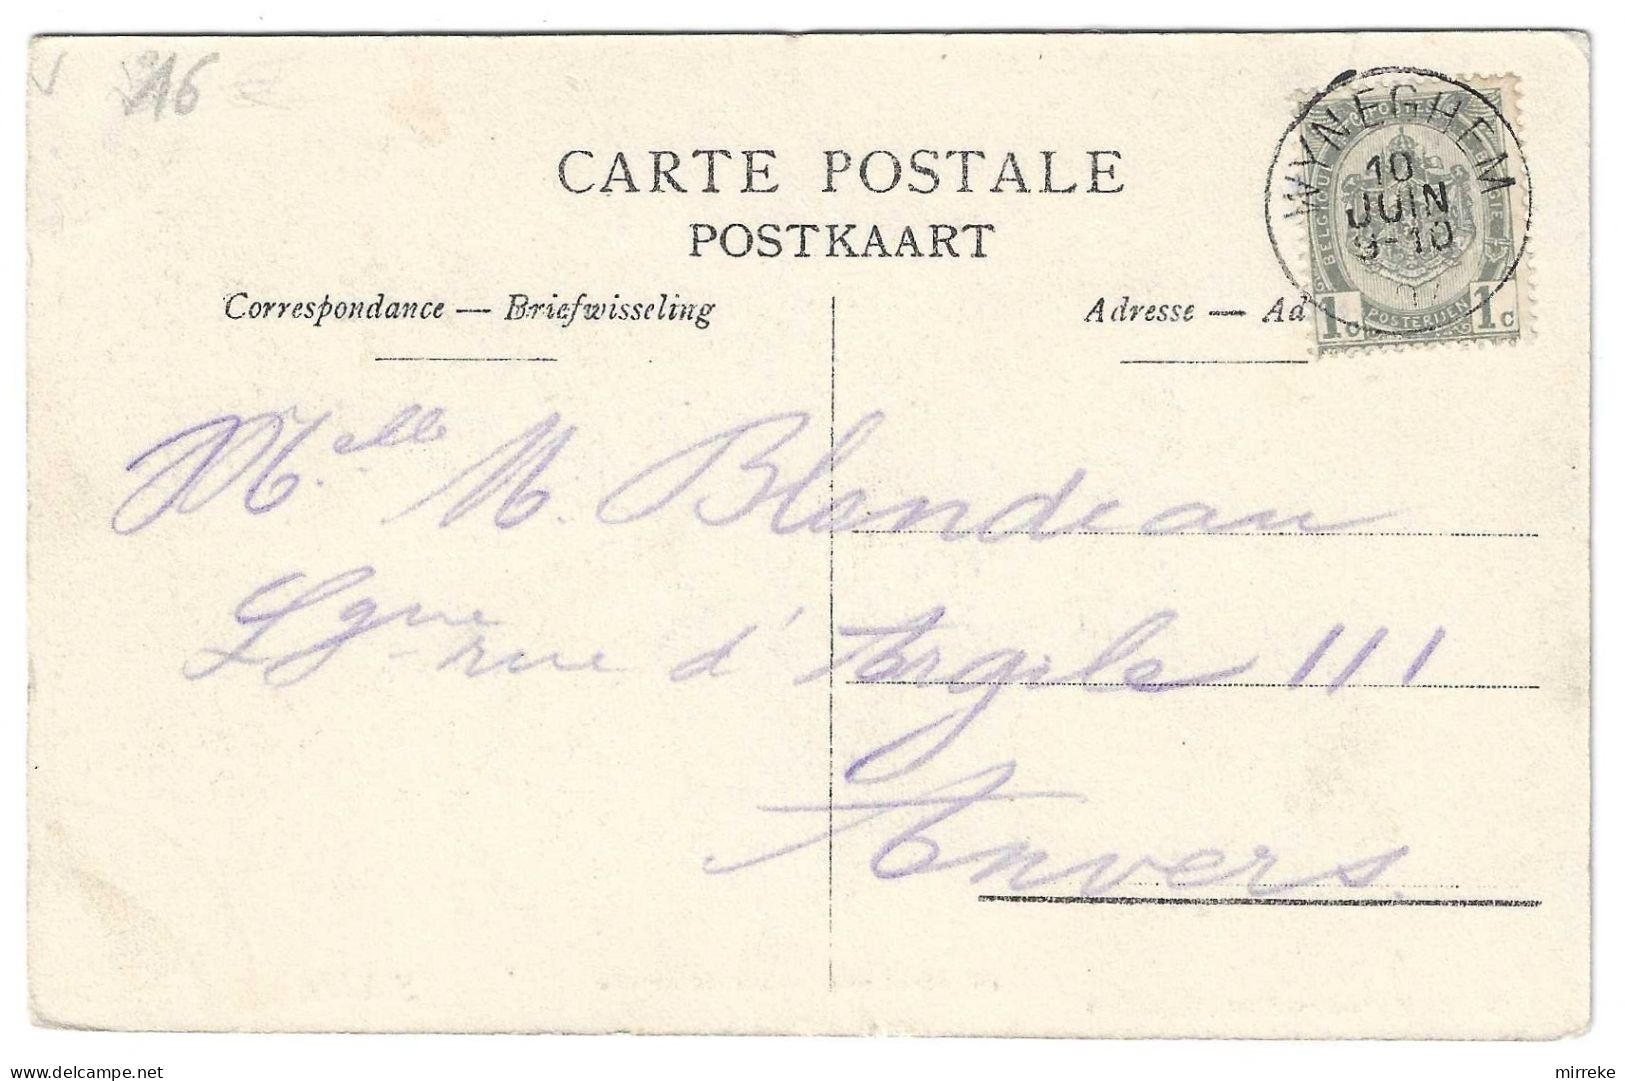 216
CARTE POSTALE
POSTKAART
WYNEGHEM
10
JUIN
9-10
BELGIQUE POSTES BELGIE
POSTERIJEN
1c 1c
Correspondance — Briefwisseling
Adresse — Ad
Melle M. Blondeau
Lgue rue d'Argile 111
Anvers.
mirreke